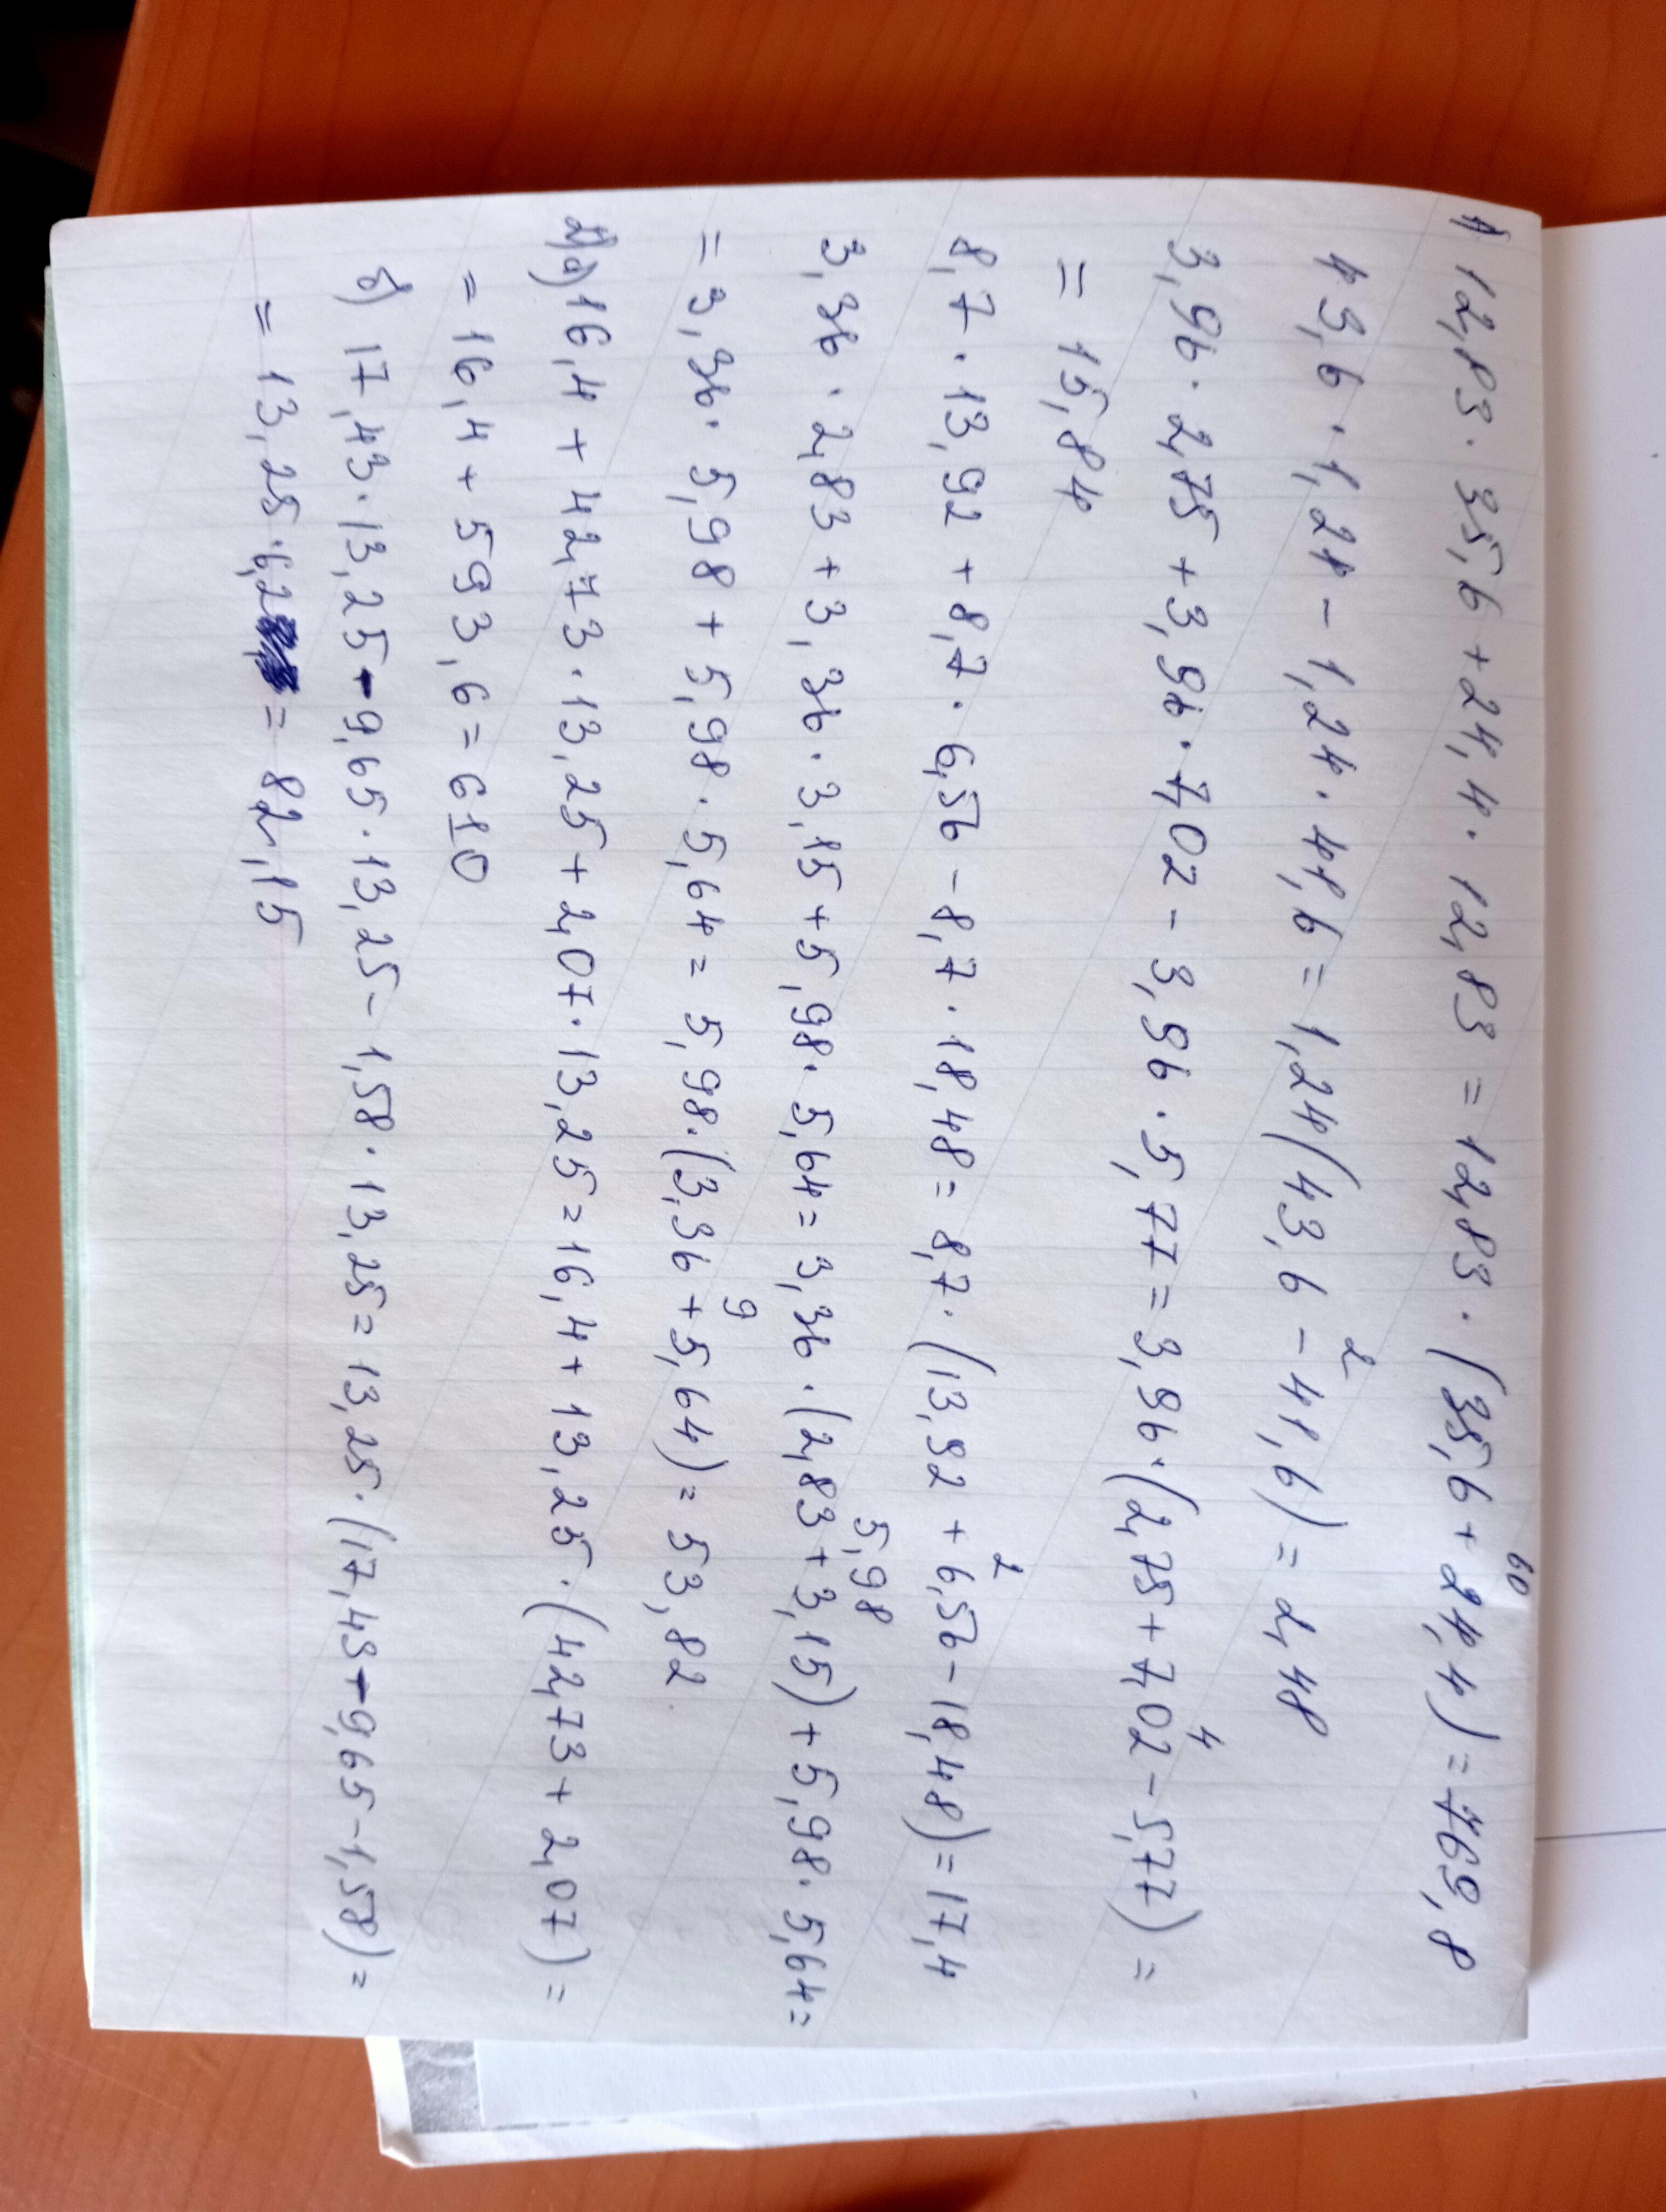 1) 12,83 · 35,6 + 24,4 · 12,83 = 12,83 · (35,6 + 24,4) = 769,8
60
43,6 · 1,24 - 1,24 · 41,6 = 1,24(43,6 - 41,6) = 2,48
2
3,96 · 2,75 + 3,96 · 7,02 - 3,96 · 5,77 = 3,96 · (2,75 + 7,02 - 5,77) =
4
= 15,84
8,7 · 13,92 + 8,7 · 6,56 - 8,7 · 18,48 = 8,7 · (13,92 + 6,56 - 18,48) = 17,4
2
3,36 · 2,83 + 3,36 · 3,15 + 5,98 · 5,64 = 3,36 · (2,83 + 3,15) + 5,98 · 5,64 =
5,98
= 3,36 · 5,98 + 5,98 · 5,64 = 5,98 · (3,36 + 5,64) = 53,82
9
2) а) 16,4 + 42,73 · 13,25 + 2,07 · 13,25 = 16,4 + 13,25 · (42,73 + 2,07) =
= 16,4 + 593,6 = 610
б) 17,43 · 13,25 - 9,65 · 13,25 - 1,58 · 13,25 = 13,25 · (17,43 - 9,65 - 1,58) =
= 13,25 · 6,2 = 82,15